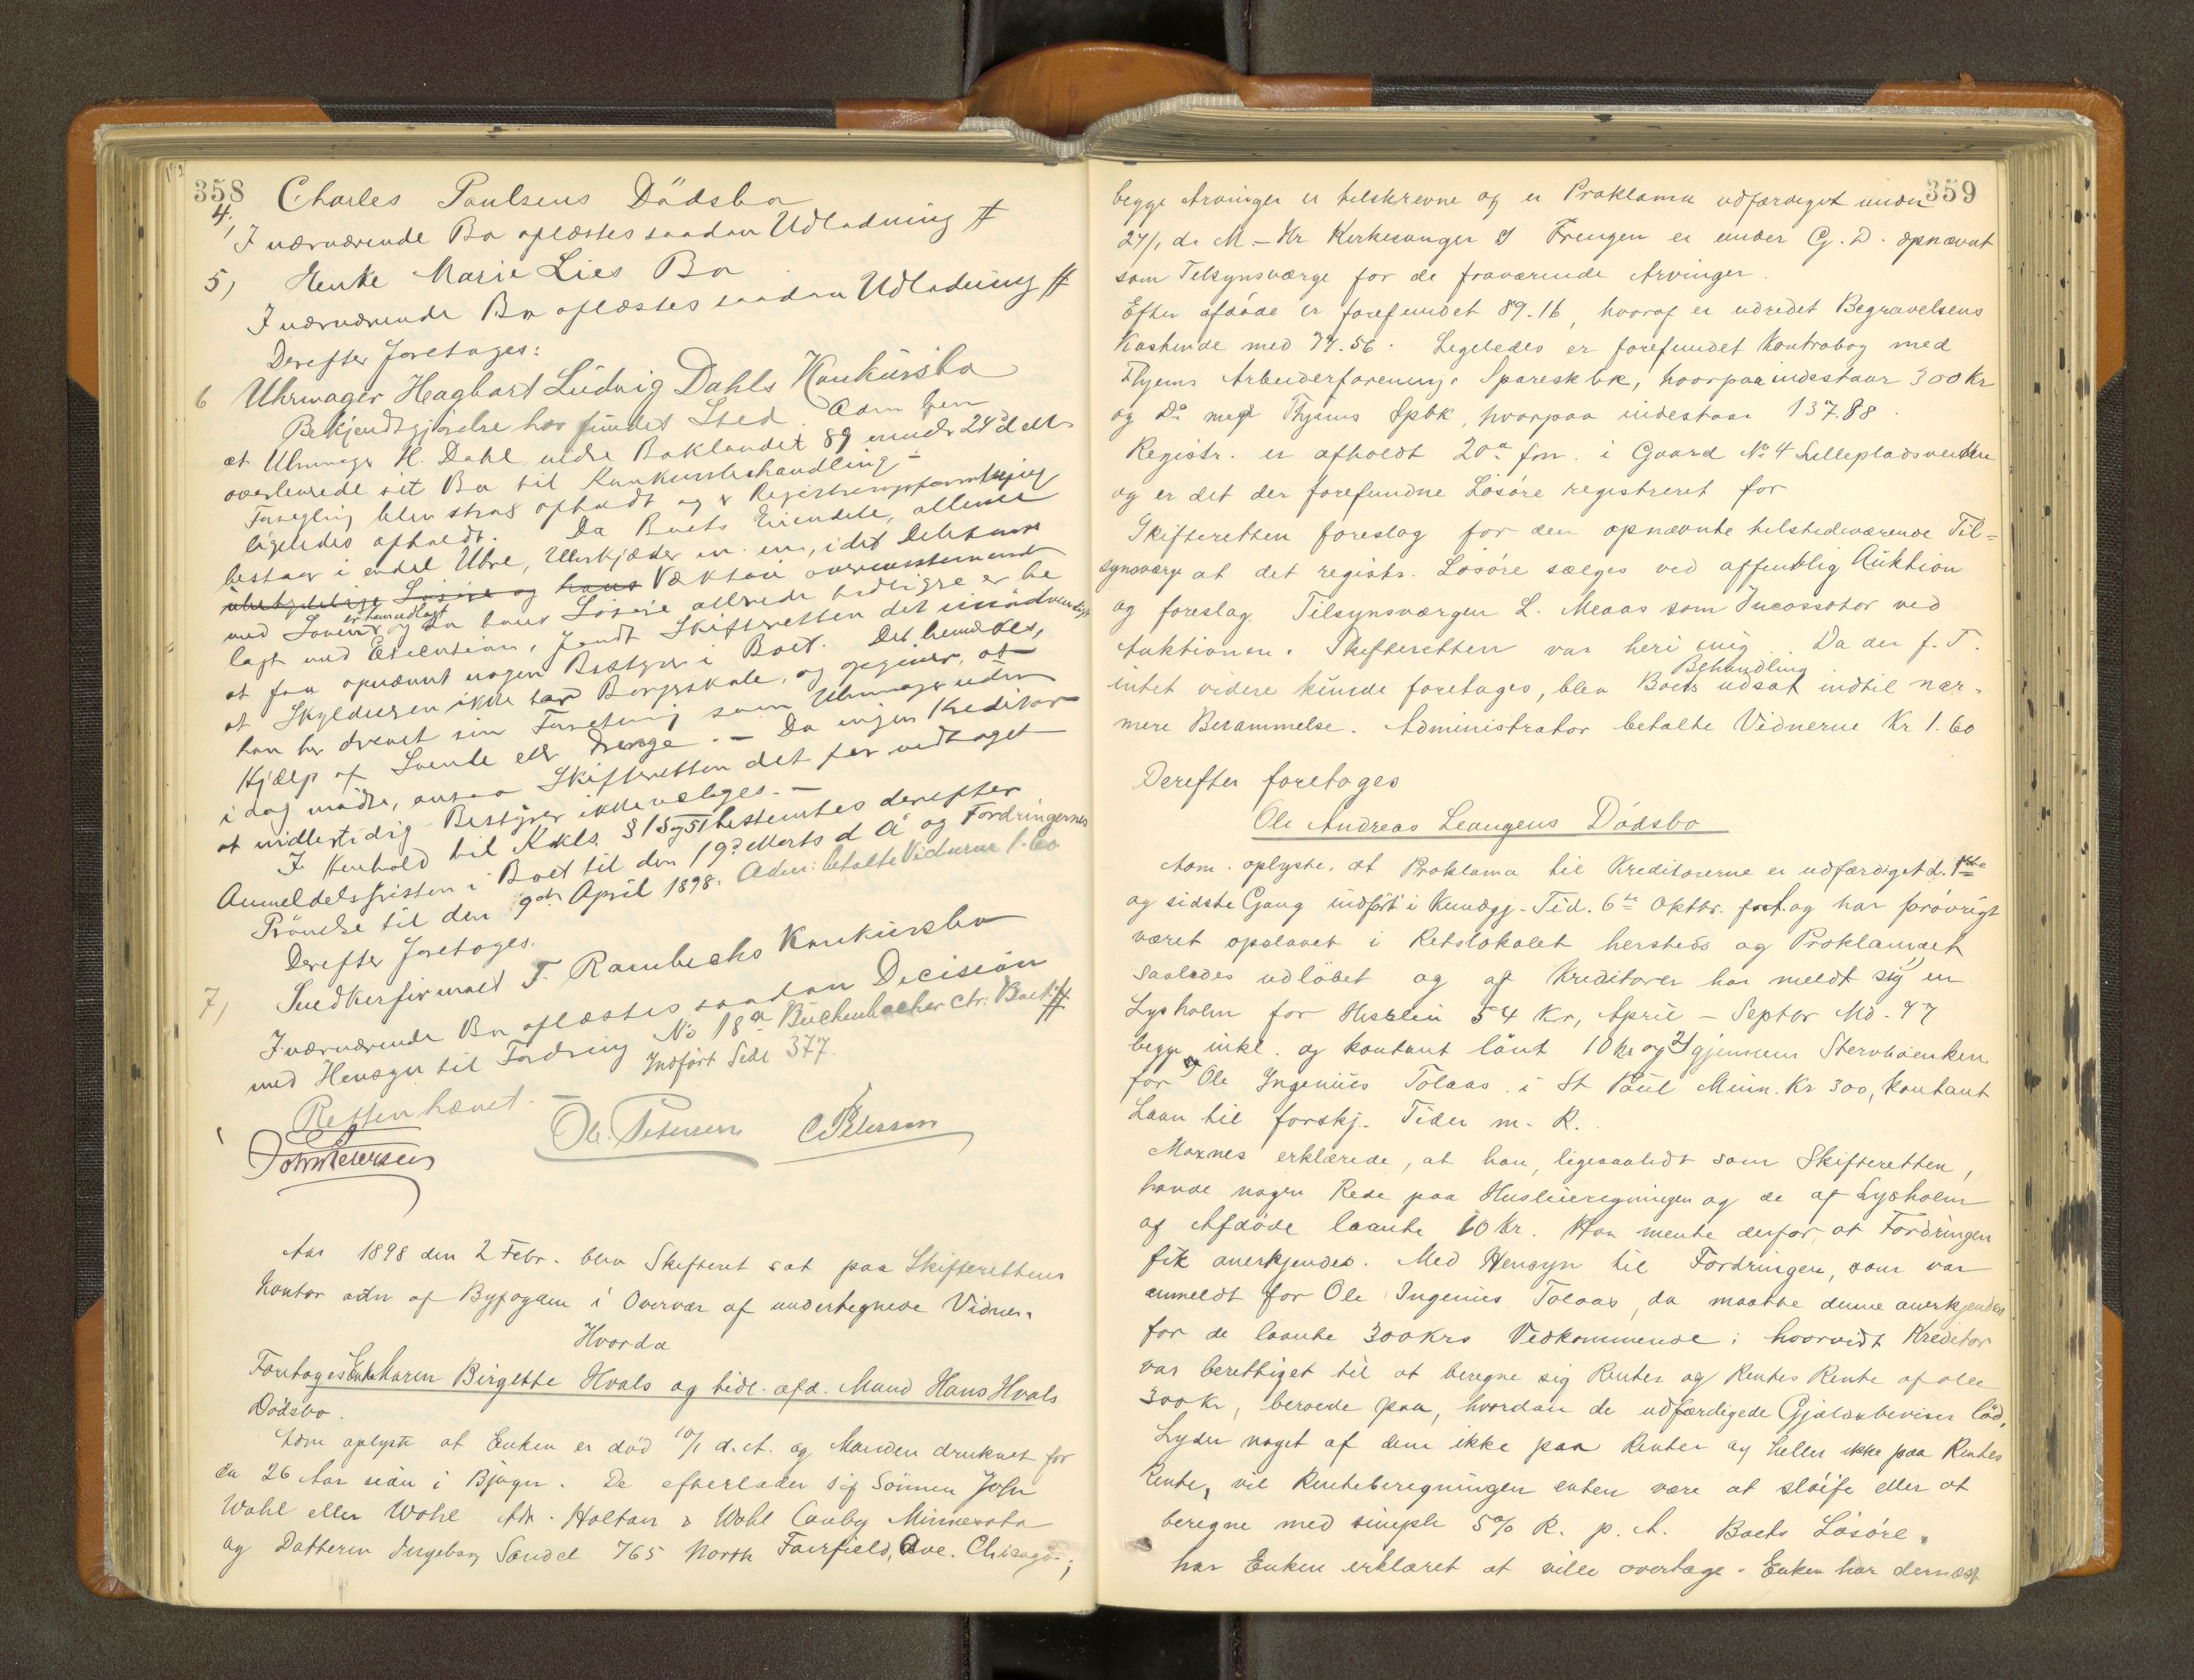 358 Charles Paulsens Dödsbo
4, I nærværende Bo oplæstes saadan Udlodning #
5, Enke Marie Lies Bo
I nærværende Bo oplæstes saadan Udlodning #
Derefter foretages:
6 Uhrmager Hagbart Ludvig Dahls Konkursbo
Bekjendtgjörelse har fundet Sted. Adm ben
at Uhrmager H. Dahl nedre Baklandet 89 under 24 d Mts
overleverede sit Bo til Konkursbehandling –
Forsegling blev strax afholdt og er Registreringsforretning
ligeledes afholdt. Da Boets Eiendele, allene
bestaar i endel Uhre, Uhrkjæder m. m., idet Debitors
ubetydelige Lösöre og hans Væktöi overensstemmende
med Loven er ham udlagt og da hans Lösöre allerede tidligre er be
lagt med Execution, fandt Skifteretten det unödvendigt
at faa opnævnt nogen Bestyrer i Boet. Det bemærkes,
at Skyldneren ikke har Borgerskab, og opgiver, at
han har drevet sin Forretning som Uhrmager uden
Hjælp af Svende eller Drenge. – Da ingen Kreditor
i dag mödte, ansaa Skifteretten det for vedtaget
at midlertidig Bestyrer ikke vælges. –
I Henhold til Kkls. § 15 og 51 bestemtes derefter
Anmeldelsfristen i Boet til den 19de Marts d A og Fordringernes
Prövelse til den 9de April 1898. Adm: betalte Vidnerne 1.60
Derefter foretoges.
7, Snedkerfirmaet F. Rambechs Konkursbo
I nærværende Bo oplæstes saadan Decision
med Hensyn til Fordring No 18a Buchenbacher ctr. Boet: #
Indfört Side 377.
Retten hævet. –
Ole. Petersen C Petersen
Aar 1898 den 2 Febr. blev Skifteret sat paa Skifterettens
Kontor adm af Byfogden i Overvær af undertegnede Vidner.
Hvorda
Foretoges Enke Maren Birgitte Hvals og tidl. afd. Mand Hans Hvals
Dödsbo.
Adm oplyste at Enken er död 10/1 d. A. og Manden druknet for
ca 26 Aar siden i Bjugn. De efterlader sig Sönnen John
Wahl eller Wohl Adr. Holtan & Wohl Canby Minnesota
og Datteren Ingeborg Sandel 765 North Fairfield, Ave. Chicago.;
359
begge Arvinger er tilskrevne og er Proklama udfærdiget under
24/1 d. M. – Hr Kirkesanger S Frengen er under G. D. opnævnt
som Tilsynsværge for de fraværende Arvinger.
Efter afdöde er forefundet 89.16, hvoraf er udredet Begravelsens
Kostende med 74.56. Ligeledes er forefundet Kontrabog med
Thjems Arbeiderforenings Spareskbk, hvorpaa indestaar 300 Kr
og Do med Thjems Spbk, hvorpaa indestaar 137.88.
Registr. er afholdt 20de fm. i Gaard No 4 Lillepladsveiten
og er det der forefundne Lösöre registreret for
Skifteretten foreslog for den opnævnte tilstedeværende Til=
synsværge at det registr. Lösöre sælges ved offentlig Auktion
og foreslog Tilsynsværgen L. Meaas som Incassator ved
Auktionen. Skifteretten var heri enig. Da der f. T.
intet videre kunde foretages, blev Boets Behandling udsat indtil nær-
mere Berammelse. Administrator betalte Vidnerne Kr 1.60
Derefter foretoges
Ole Andreas Leangens Dödsbo
Adm. oplyste, at Proklama til Kreditorerne er udfærdiget d. 1ste
og sidste Gang indfört i Kundgj-Tid. 6te Oktbr. f. A. og har forövrigt
været opslaaet i Retslokalet hersteds og Proklamaet
saaledes udlöbet og af Kreditorer har meldt sig 1) en
Lysholm for Husleie 54 Kr, April – Septbr Md. 97
begge inkl. og kontant lånt 10 kr og 2) gjennem Stervboenken
for Ole Ingenius Tolaas i St Paul Minn. Kr 300, kontant
Laan til forskj. Tider m. R.
Moxnes erklærede, at han, ligesaalidt som Skifteretten,
havde nogen Rede paa Husleieregningen og de af Lysholm
af Afdöde laante 10 kr. Han mente derfor, at Fordringen
fik anerkjendes. Med Hensyn til Fordringen, som var
anmeldt for Ole Ingenius Tolaas, da maatte denne anerkjendes
for de laante 300 krs Vedkommende; hvorvidt Kreditor
var berettiget til at beregne sig Renter og Rentes Rente af alle
300 kr, beroede paa, hvordan de udfærdigede Gjældsbeviser löd,
Lyder noget af dem ikke paa Renter og heller ikke paa Rentes
Rente, vil Renteberegningen enten være at slöife eller at
beregne med simple 5% R. p. A. Boets Lösöre,
har Enken erklæret at ville overtage. Enken har dernæst